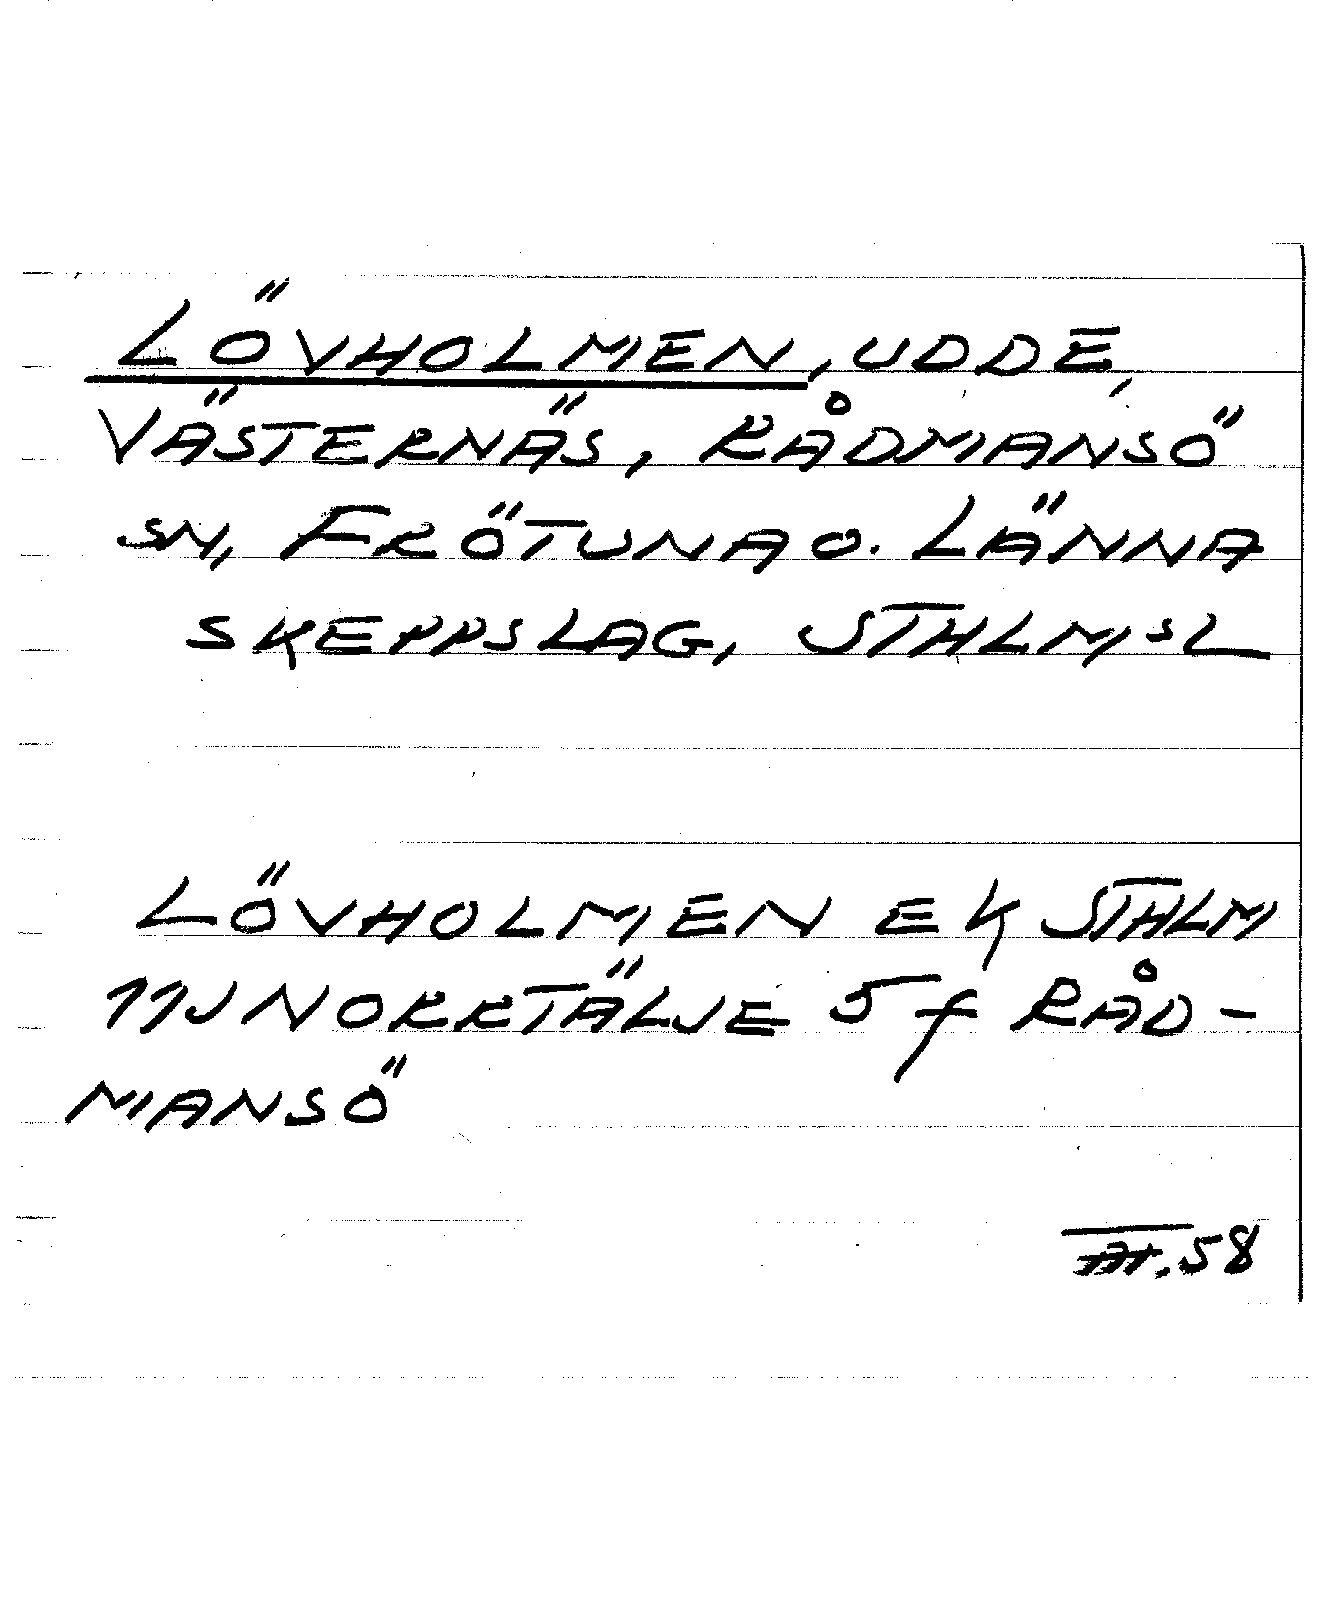 LÖVHOLMEN, UDDE,
VÄSTERNÄS, RÅDMANSÖ
SN, FRÖTUNA O. LÄNNA
SKEPPSLAG, STHLMS L
LÖVHOLMEN EK STHLM
11J NORRTÄLJE 5f RÅD-
MANSÖ
.58